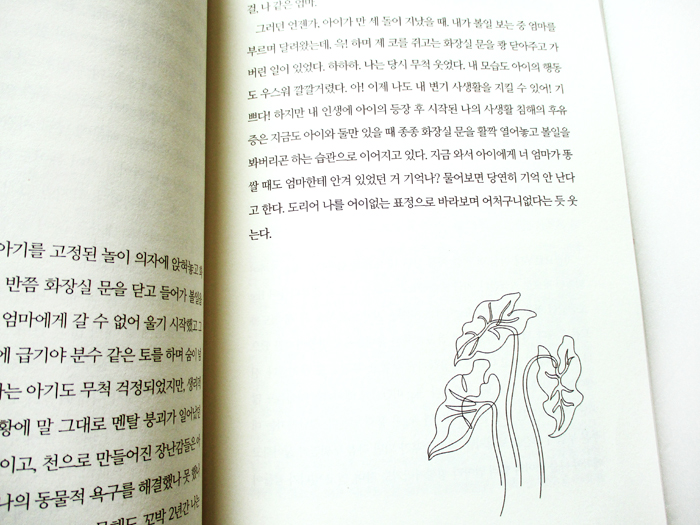 아기를 고정된 놀이 의자에 앉혀놓고
반쯤 화장실 문을 닫고 들어가 볼일을
엄마에게 갈 수 없어 울기 시작했고 그
에 급기야 분수 같은 토를 하며 숨이
나는 아기도 무척 걱정되었지만, 생리적
황에 말 그대로 멘탈 붕괴가 일어났던
이고, 천으로 만들어진 장난감들은
나의 동물적 욕구를 해결했나 못
꼬박 2년간 나는
걸, 나 같은 엄마.
그러던 언젠가, 아이가 만 세 돌이 지났을 때, 내가 볼일 보는 중 엄마를
부르며 달려왔는데, 윽! 하며 제 코를 쥐고는 화장실 문을 쾅 닫아주고 가
버린 일이 있었다. 하하하. 나는 당시 무척 웃었다. 내 모습도 아이의 행동
도 우스워 깔깔거렸다. 아! 이제 나도 내 변기 사생활을 지킬 수 있어! 기
쁘다! 하지만 내 인생에 아이의 등장 후 시작된 나의 사생활 침해의 후유
증은 지금도 아이와 둘만 있을 때 종종 화장실 문을 활짝 열어놓고 볼일을
봐버리곤 하는 습관으로 이어지고 있다. 지금 와서 아이에게 너 엄마가 똥
쌀 때도 엄마한테 안겨 있었던 거 기억나? 물어보면 당연히 기억 안 난다
고 한다. 도리어 나를 어이없는 표정으로 바라보며 어처구니없다는 듯 웃
는다.